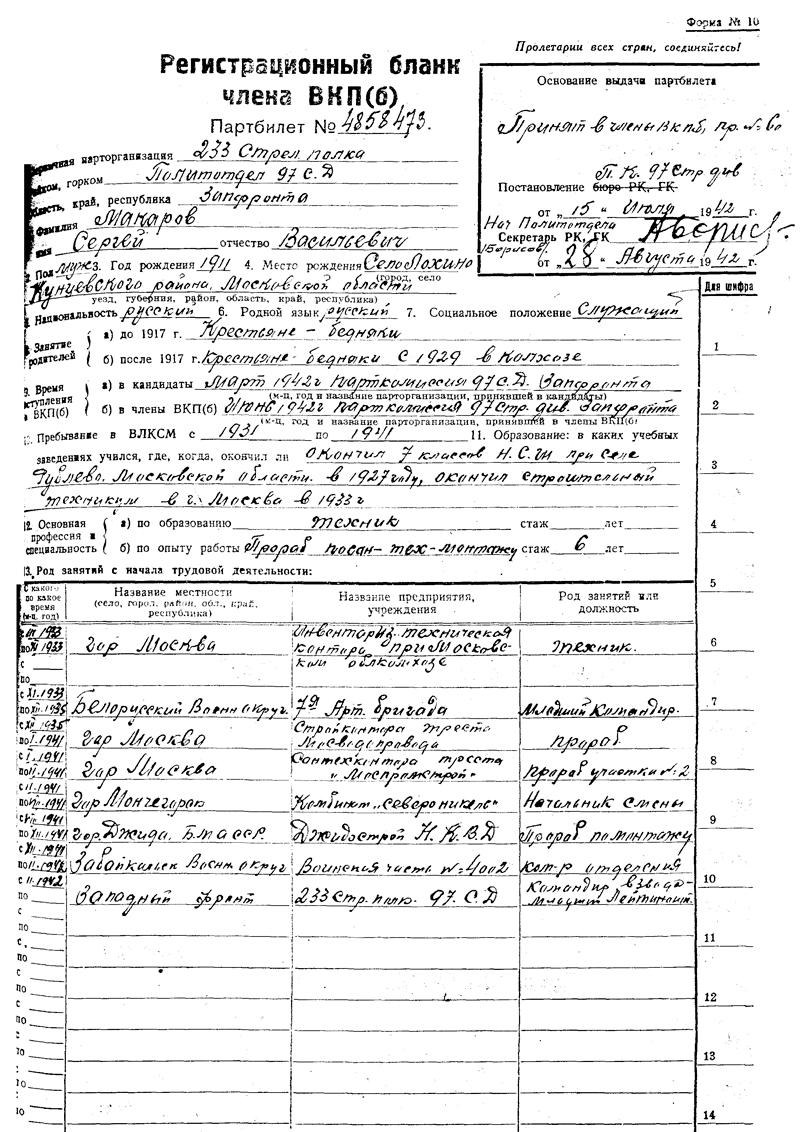 Форма № 10
Пролетарии всех стран, соединяйтесь!
Регистрационный бланк
члена ВКП(б)
Партбилет № 4858473.
Основание выдачи партбилета
Принят в члены ВКПб, пр. № 60
П.К. 97 Стр див
Постановление бюро РК, ГК
от „15" Июля 1942 г.
Нач Политотдела
Секретарь РК, ГК
(Борисов)
от „28" Августа 1942 г.
парторганизация 233 Стрел полка
горком Политотдел 97 С.Д
область, край, республика Запфронта
Фамилия Макаров
имя Сергей отчество Васильевич
2. Пол муж 3. Год рождения 1911 4. Место рождения Село Лохино
(город, село
Кунцевского района, Московской области
уезд, губерния, район, область, край, республика)
Для шифра
Национальность русский 6. Родной язык русский 7. Социальное положение Служащий
Занятие родителей
а) до 1917 г. Крестьяне - бедняки
б) после 1917 г. Крестьяне - бедняки с 1929 в Колхозе
9. Время вступления в ВКП(б)
а) в кандидаты Март 1942г парткомиссия 97 С.Д. Запфронта
(м-ц, год и название парторганизации, принявшей в кандидаты)
б) в члены ВКП(б) Июнь 1942г парткомиссия 97 Стр. див. Запфронта
(м-ц, год и название парторганизации, принявшей в члены ВКП(б)
10. Пребывание в ВЛКСМ с 1931 по 1941 11. Образование: в каких учебных
заведениях учился, где, когда, окончил ли окончил 7 классов Н.С.Ш при селе
Рублево, Московской области. в 1927 году, окончил строительный
техникум в г. Москва в 1933 г
12. Основная профессия и специальность
а) по образованию техник стаж лет
б) по опыту работы Прораб по сан-тех-монтажу стаж 6 лет
13. Род занятий с начала трудовой деятельности:
С какого по какое время (м-ц, год)
Название местности (село, город, район, обл., край, республика)
Название предприятия, учреждения
Род занятий или должность
1933 по XI 1933 гор Москва Инвентариз. техническая контора при Московском облколхозе техник.
с XI.1933 по XII.1935 Белорусский Военн округ. 7я Арт. бригада Младший Командир.
с XII 1935 по I.1941 гор Москва Стройконтора треста Мосводопровода прораб
с I.1941 по II.1941 гор Москва Сантехконтора треста „Моспромстрой" Прораб участка № 2
с II.1941 по VII.1941 Гор Мончегорск Комбинат „Североникель" Начальник смены
с VII.1941 по XII.1941 гор. Джида, БМАССР. Джидастрой Н.К.В.Д Прораб по монтажу
с XII.1941 по II.1942 Забайкальск Военн округ Воинская часть № 4002 ком-р отделения
с II.1942 по Западный фронт 233 Стр. полк. 97. С.Д Командир взвода - младший лейтенант.
1
2
3
4
5
6
7
8
9
10
11
12
13
14